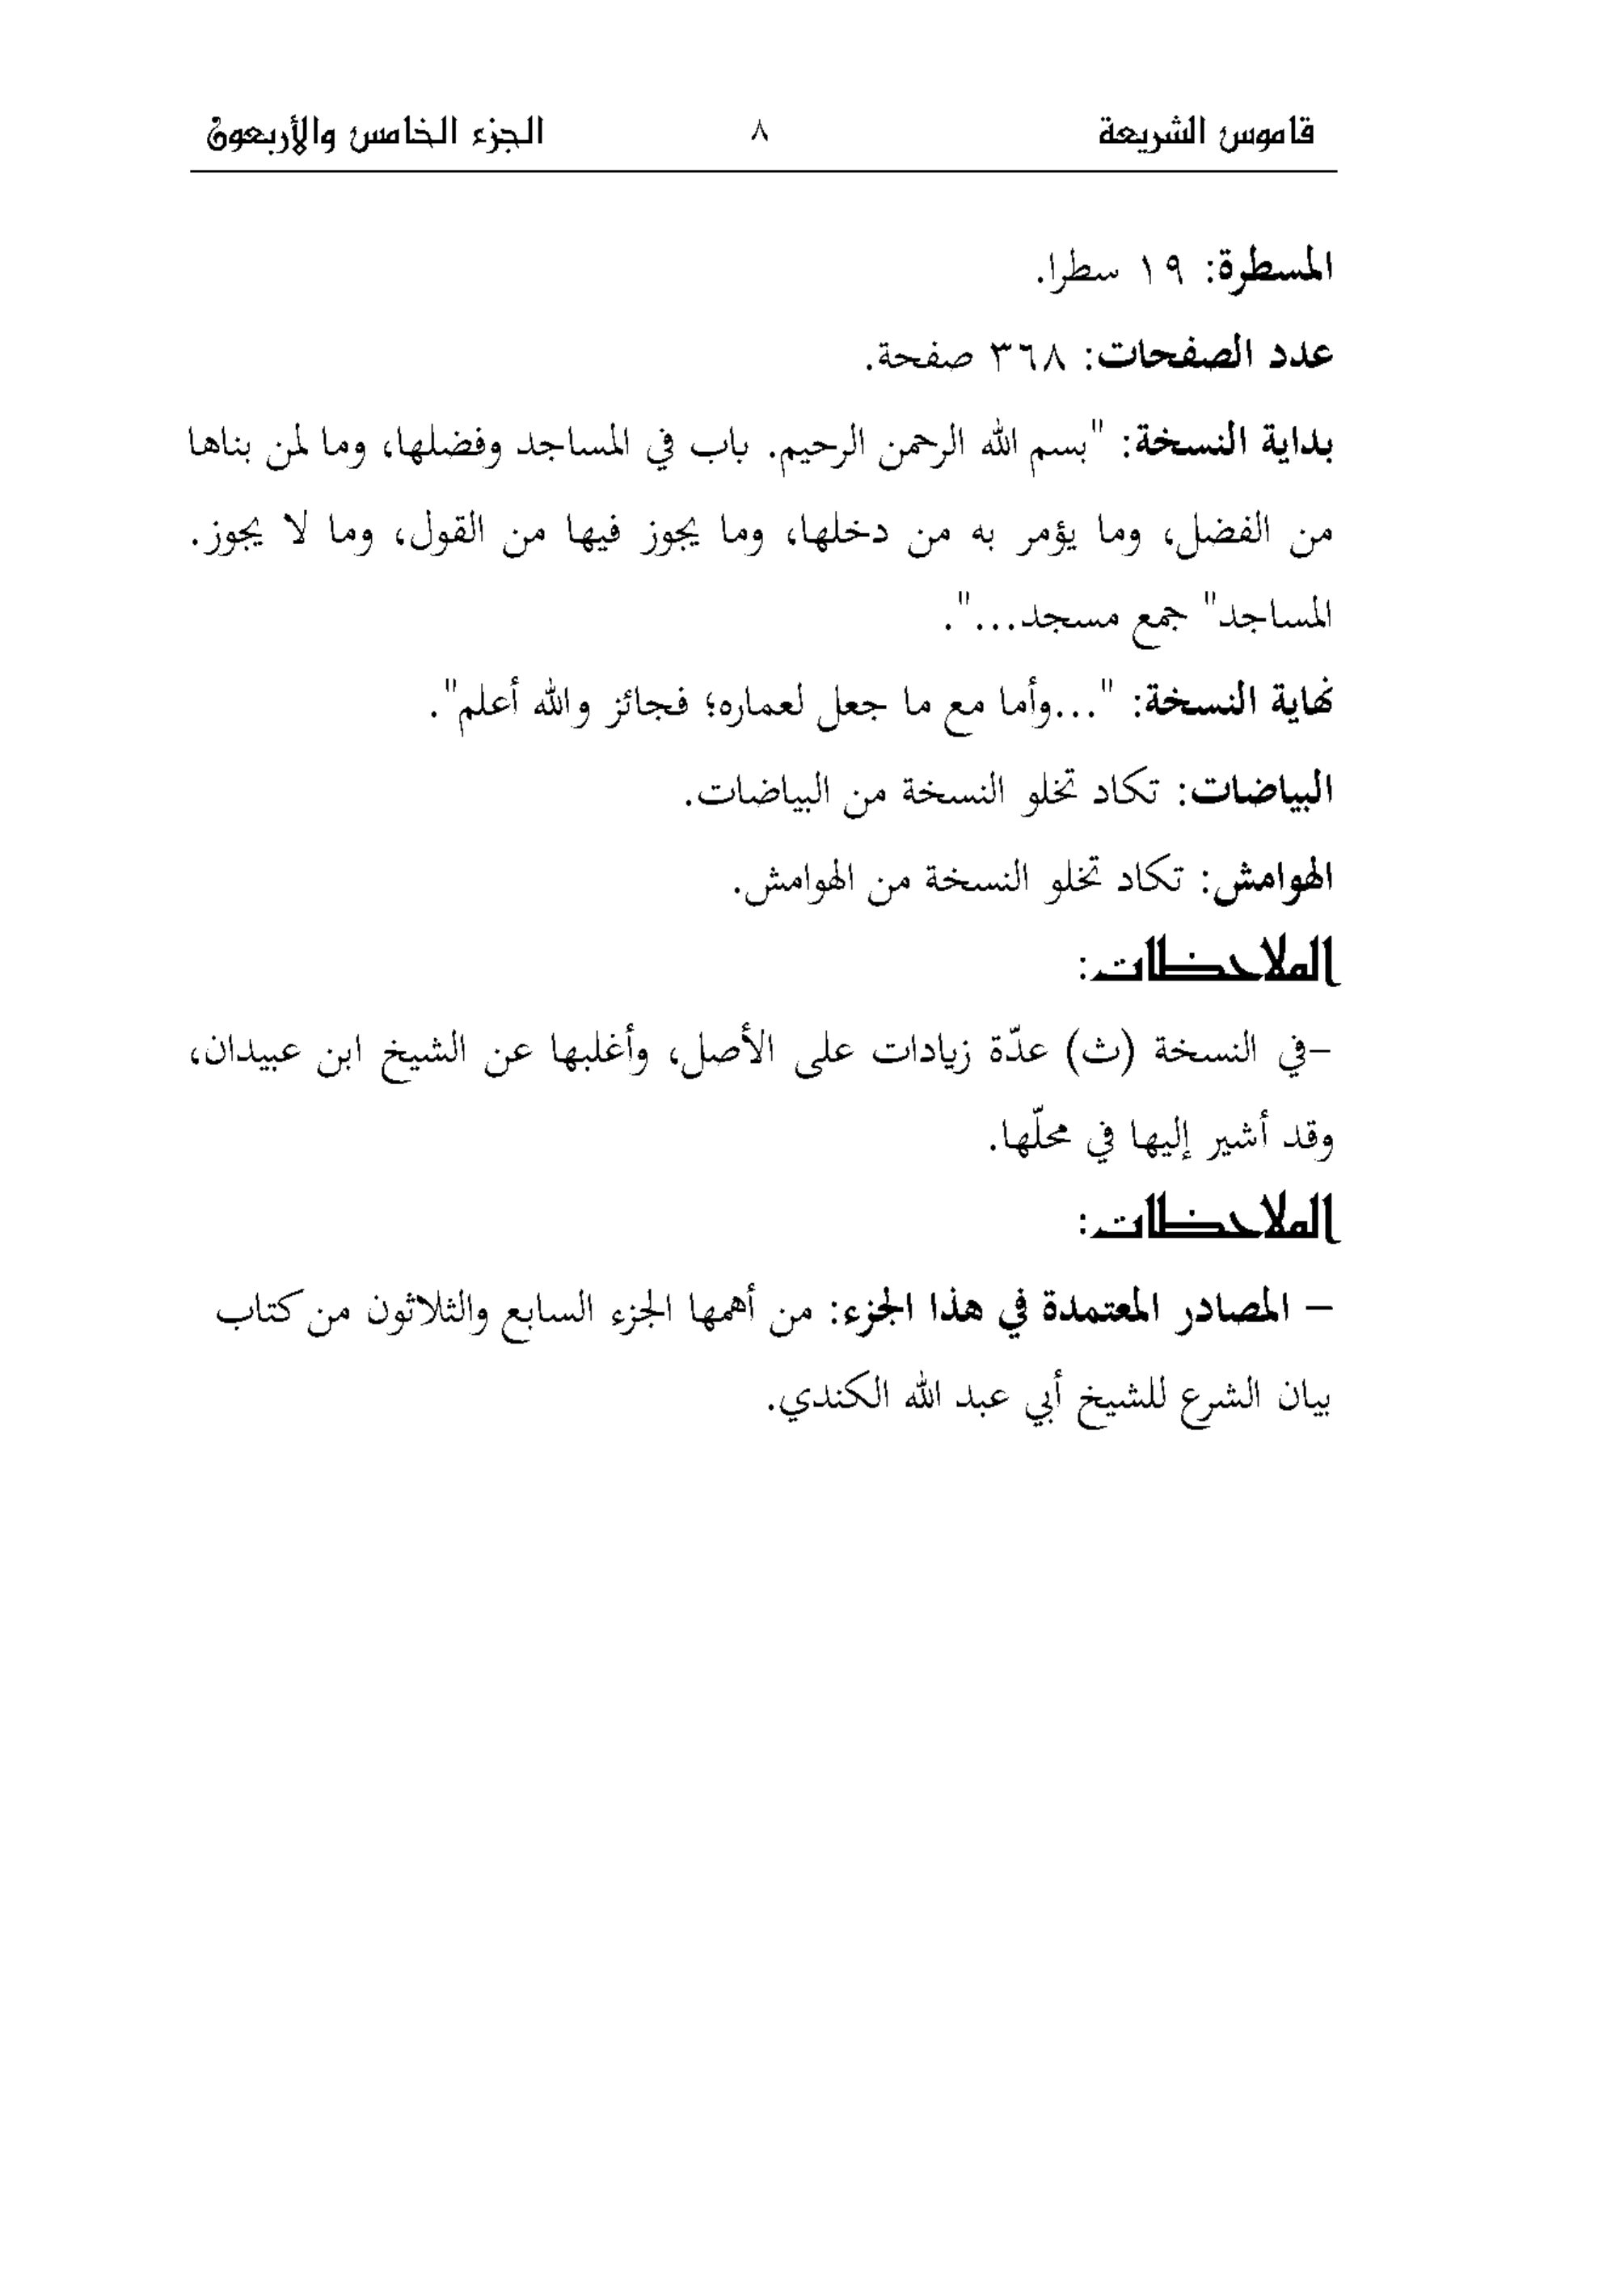 قاموس الشريعة ٨ الجزء الخامس والأربعون
المسطرة: ١٩ سطرا.
عدد الصفحات: ٣٦٨ صفحة.
بداية النسخة: "بسم الله الرحمن الرحيم. باب في المساجد وفضلها، وما لمن بناها
من الفضل، وما يؤمر به من دخلها، وما يجوز فيها من القول، وما لا يجوز.
المساجد" جمع مسجد...".
نهاية النسخة: "...وأما مع ما جعل لعماره؛ فجائز والله أعلم".
البياضات: تكاد تخلو النسخة من البياضات.
الهوامش: تكاد تخلو النسخة من الهوامش.
الملاحظات:
-في النسخة (ث) عدّة زيادات على الأصل، وأغلبها عن الشيخ ابن عبيدان،
وقد أشير إليها في محلّها.
الملاحظات:
- المصادر المعتمدة في هذا الجزء: من أهمها الجزء السابع والثلاثون من كتاب
بيان الشرع للشيخ أبي عبد الله الكندي.